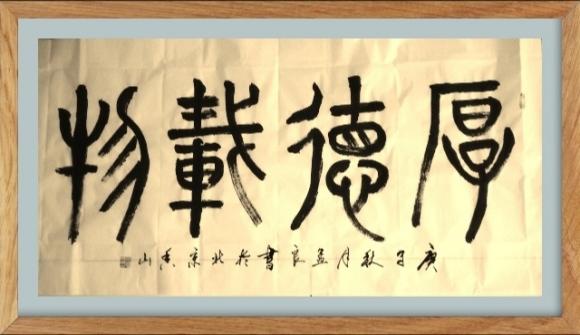 厚德載物
庚子秋月孟良書於北京香山